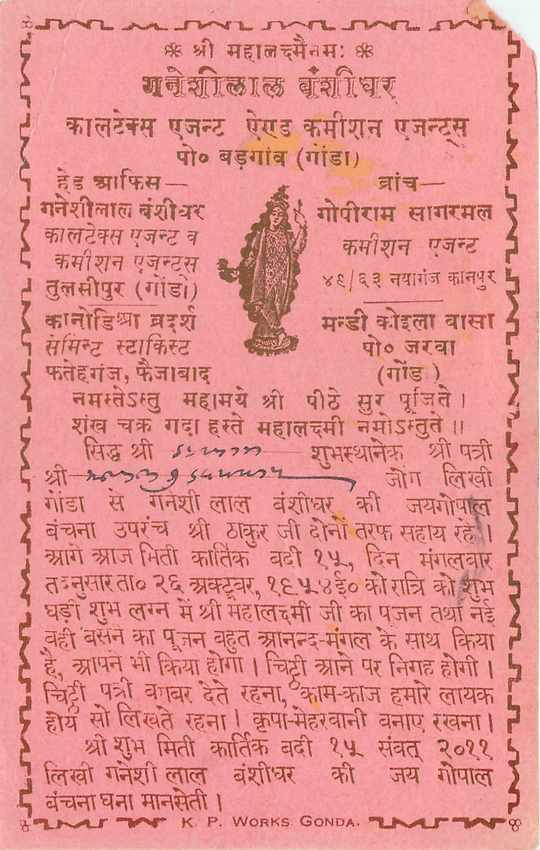 ❀ श्री महालक्ष्मैनमः ❀
गनेशीलाल बंशीधर
कालटेक्स एजन्ट ऐण्ड कमीशन एजन्ट्स
पो० बड़गांव (गोंडा)
हेड आफिस—
गनेशीलाल बंशीधर
कालटेक्स एजन्ट व
कमीशन एजन्टस
तुलसीपुर (गोंडा)
कानोडिआ ब्रदर्श
संमिन्ट स्टाकिस्ट
फतेहगंज, फैजाबाद
ब्रांच—
गोपीराम सागरमल
कमीशन एजन्ट
४९/६३ नयागंज कानपुर
मन्डी कोइला वासा
पो० जरवा
(गोंड)
नमस्तेऽस्तु महामये श्री पीठे सुर पूजिते।
शंख चक्र गदा हस्ते महालक्ष्मी नमोऽस्तुते॥
सिद्ध श्री शुभस्थानेक श्री पत्री
श्री— जोग लिखी
गोंडा से गनेशी लाल बंशीधर की जयगोपाल
बंचना उपरंच श्री ठाकुर जी दोनों तरफ सहाय रहें।
आगे आज मिती कार्तिक बदी १५, दिन मंगलवार
तदनुसार ता० २६ अक्टूबर, १९५४ई० को रात्रि को शुभ
घड़ी शुभ लग्न में श्री महालक्ष्मी जी का पूजन तथा नई
बही बसने का पूजन बहुत आनन्द-मंगल के साथ किया
है, आपने भी किया होगा। चिट्ठी आने पर निगह होगी।
चिट्ठी पत्री बराबर देते रहना, काम-काज हमारे लायक
होय सो लिखते रहना। कृपा-मेहरवानी वनाए रखना।
श्री शुभ मिती कार्तिक बदी १५ संवत् २०११
लिखी गनेशी लाल बंशीधर की जय गोपाल
बंचना घना मानसेती।
K. P. WORKS GONDA.